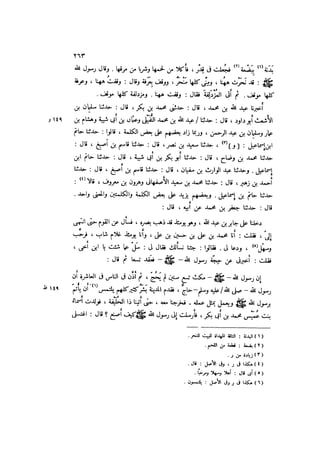 ٢٦٣
بَدَنَة (١) بِبَضْعة (٢) فجعلت فى قِدْر ، فأكلا من لحمها وشربا من مرقها . وقال رسول الله
ﷺ : قد نحرْت ههنا ، ومِنًى كلها مَنْحَر ، ووقف بعَرفة وقال : وقفت ههنا ، وعرفة
كلها موقف . ثم أتى المُزْدَلِفة فقال : وقفت ههنا . ومزدلفة كلها موقف .
أخبرنا عبد الله بن محمد ، قال : حدثنى محمد بن بكر ، قال : حدثنا سليمان بن
الأشعث أبو داود ، قال : حدثنا / عبد الله بن محمد النُّفَيْلى وعثمان بن أبى شيبة وهشام بن
١٤٩ و
عمار وسليمان بن عبد الرحمن ، وربما زاد بعضهم على بعض الكلمة ، قالوا : حدثنا حاتم
ابن إسماعيل : ( و ) (٣) ، حدثنا سعيد بن نصر ، قال : حدثنا قاسم بن أصبغ ، قال :
حدثنا محمد بن وضاح ، قال : حدثنا أبو بكر بن أبى شيبة ، قال : حدثنا حاتم ابن
إسماعيل . وحدثنا عبد الوارث بن سفيان ، قال : حدثنا قاسم بن أصبغ ، قال : حدثنا
أحمد بن زهير ، قال : حدثنا محمد بن سعيد الأصفهانى وهرون بن معروف ، قالا (٤) :
حدثنا حاتم بن إسماعيل . وبعضهم يزيد على بعض الكلمة والكلمتين والمعنى واحد .
قال : حدثنا جعفر بن محمد عن أبيه ، قال :
دخلنا على جابر بن عبد الله ، وهو يومئذ قد ذهب بصره ، فسأل عن القوم حتى انتهى
إلىّ ، فقلت : أنا محمد بن على بن حسين بن على ، وأنا يومئذ غلام شاب ، فرحَّب
وسهَّل (٥) ، ودعا لى . فقالوا : جئنا نسألك فقال لى : سَلْ عما شئت يا ابن أخى ،
فقلت : أخبرنى عن حِجَّة رسول الله – ﷺ – فعقد تسعا ثم قال :
إن رسول الله – ﷺ – مكث تسع سنين لم يَحُجَّ ، ثم أذَّن فى الناس فى العاشرة أن
رسول الله – صلى الله / عليه وسلم – حاجّ ، فقدم المدينة بَشَرٌ كثير كلهم يلتمس (٦) أن يأتمّ
١٤٩ ظ
برسول الله ﷺ ويعمل بمثل عمله . فخرجنا معه ، حتى أتينا ذا الحُلَيْفة ، فولدت أسماء
بنت عُمَيْس محمد بن أبى بكر ، فأرسلت إلى رسول الله ﷺ كيف أصنع ؟ قال : اغتسلى
(١) البدنة : الناقة المهداة للبيت لتنحر .
(٢) بضعة : قطعة من اللحم .
(٣) زيادة من ر .
(٤) هكذا فى ر وفى الأصل : قال .
(٥) أى قال : أهلا وسهلا ومرحبا .
(٦) هكذا فى ر وفى الأصل : يلتمسون .